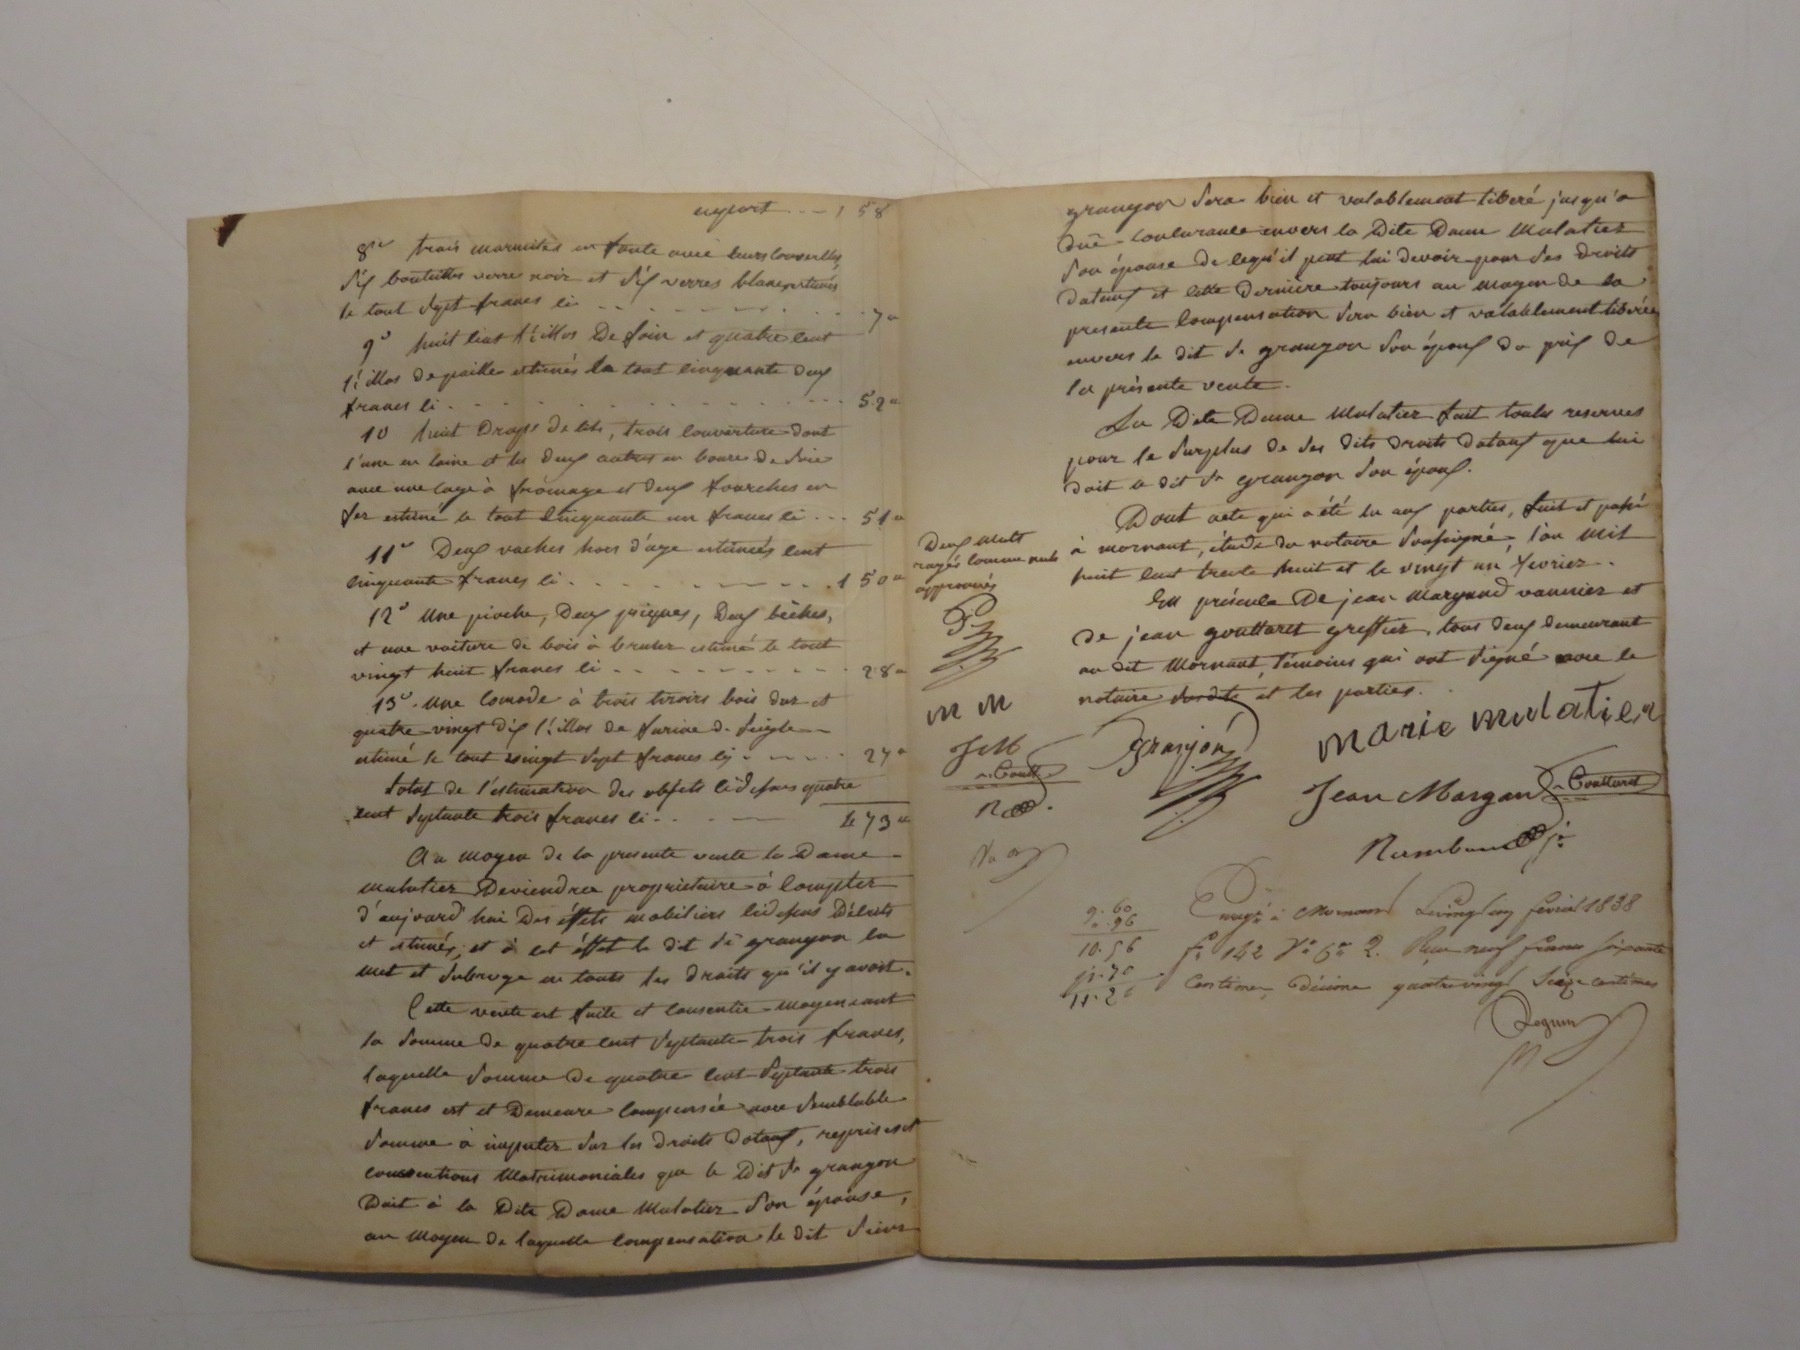 report . . . 1 58
8º trois marmites en fonte avec leurs couvercles,
dix bouteilles verre noir et dix verres blanc estimés
le tout sept francs ci . . . . . . 7 "
9º huit cent killos de foin et quatre cent
killos de paille estimés le tout cinquante deux
francs ci . . . . . . 52 "
10 huit draps de lits, trois couverture dont
l'une en laine et les deux autres en boure de soie
avec une cage à fromage et deux fourches en
fer estimé le tout cinquante un francs ci . . . 51 "
11º Deux vaches hors d'age estimées cent
cinquante francs ci . . . . . . 150 "
12º une pioche, Deux pioques, Deux bèches,
et une voiture de bois à bruler estimé le tout
vingt huit francs ci . . . . . . 28 "
13º. une comode à trois tiroirs bois dur et
quatre vingt dix killos de farine de seigle
estimé le tout vingt sept francs ci . . . . 27 "
Total de l'estimation des objets cidessus quatre
cent septante trois francs ci . . . 473 "
Au moyen de la presente vente la Dame
mulatier Deviendra propriétaire à compter
d'aujourd'hui Des effets mobiliers cidessus Décrits
et estimés, et à cet effet le dit sr grangon la
met et subroge en touts les droits qu'il y avoit.
Cette vente est faite et consentie moyennant
la somme de quatre cent septante trois francs,
laquelle somme de quatre cent septante trois
francs est et Demeure compensée avec semblable
somme à imputer sur les droits dotaux, reprises et
conventions Matrimoniales que le Dit sr grangon
Doit à la Dite Dame Mulatier son épouse,
au moyen de laquelle compensation le dit sieur
grangon sera bien et valablement liberé jusqu'a
due concurrance envers la Dite Dame Mulatier
son épouse de lequ'il peut lui devoir pour ses droits
dotaux et cette dernière toujours au moyen de la
presente compensation sera bien et valablement libérée
envers le dit sr grangon son époux du prix de
la présente vente.
La Dite Dame Mulatier fait toutes reserves
pour le surplus de ses dits droits dotaux que lui
doit le dit sr grangon son époux.
Dont acte qui a été lu aux parties, fait et passé
à mornant, étude du notaire soussigné, l'an mil
huit cent trente huit et le vingt un fevrier.
En présence De jean margand vannier et
de jean gouttaret greffier, tous deux demeurant
au dit Mornant, témoins qui ont signé avec le
notaire susdits et les parties.
Deux mots
rayés comme nuls
approuvés
G
m m
JM
Goutt
R
Grangon
marie mulatier
Jean Margand
Gouttaret
Rambaud jr
9. 60
". 96
10. 56
11. 26
Enregé à Mornant le vingt cinq fevrier 1838
fo 142 Vo C 2. Reçu neuf francs soixante
centimes, décime quatre vingt seize centimes